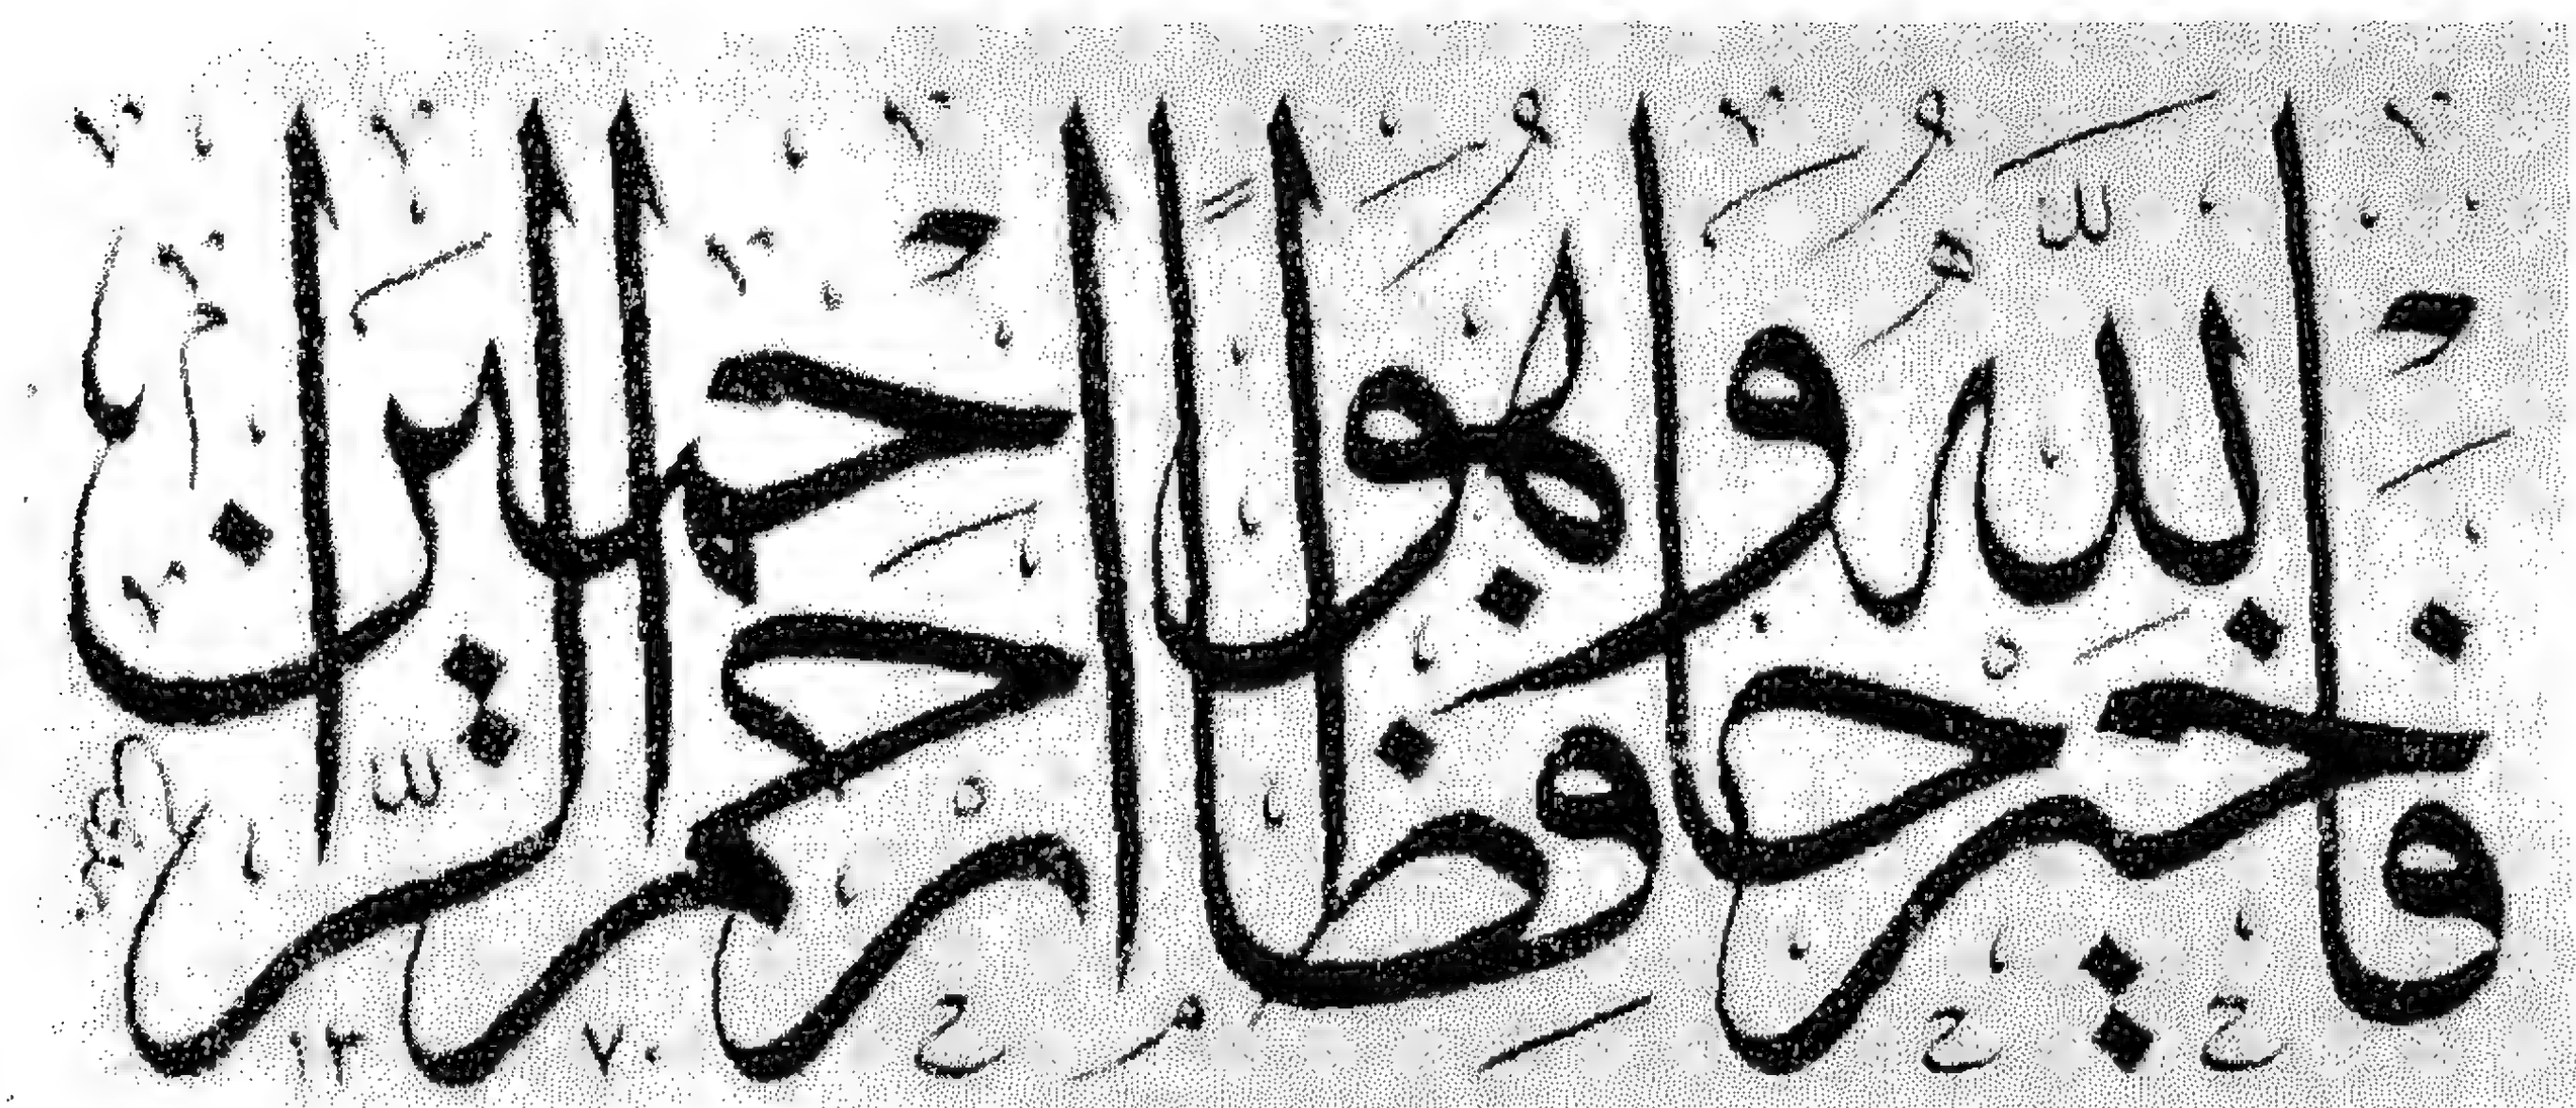 فالله خير حافظا وهو أرحم الراحمين
١٣٧٠